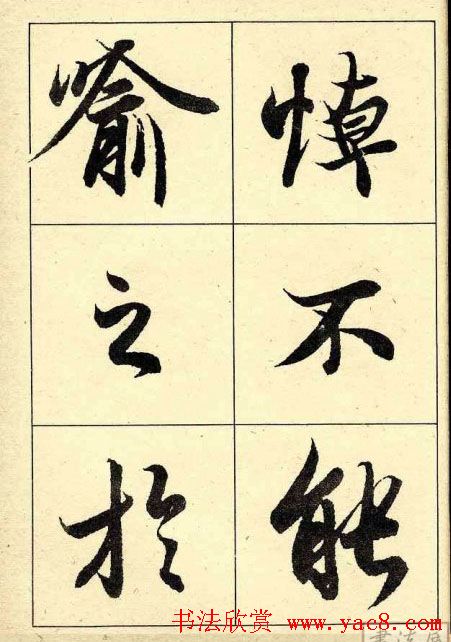 悼不能
喻之於
书法欣赏 www.yac8.com